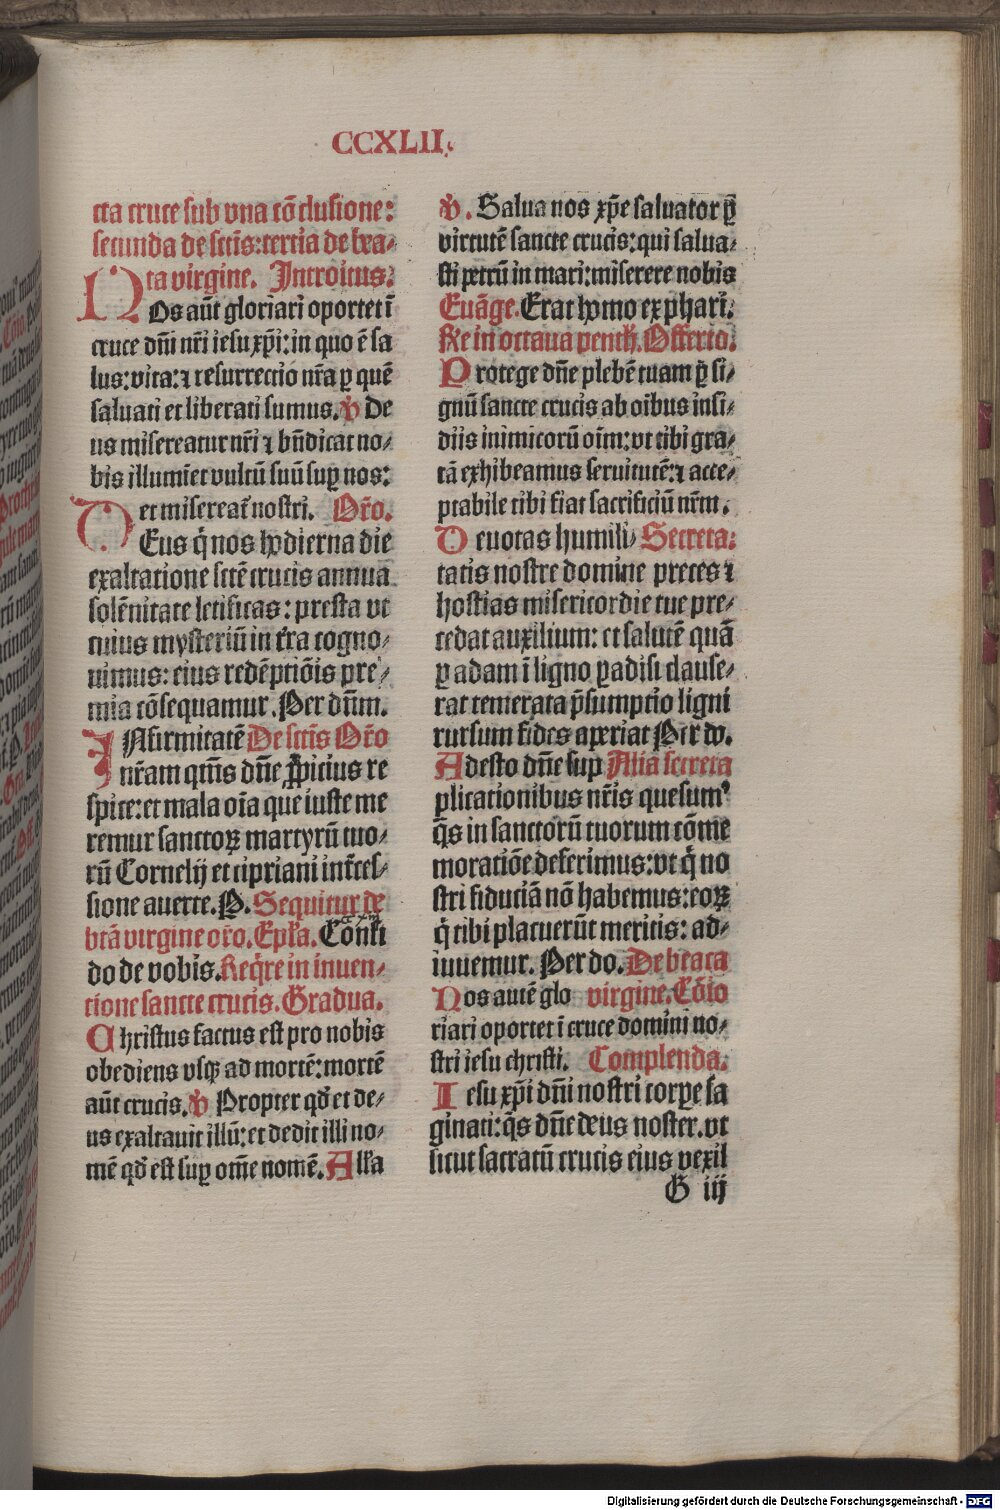 CCXLII.
cta cruce sub vna cōclusione:
secunda de sctis: tertia de bea-
ta virgine. Introitus.
NOs aūt gloriari oportet ī
cruce dñi nr̄i iesu xp̄i: in quo ē sa
lus: vita: ⁊ resurrectio nr̄a ꝑ quē
saluati et liberati sumus. ℣ De
us misereatur nr̄i ⁊ bñdicat no-
bis illumīet vultū suū suꝑ nos:
et misereat̄ nostri. Or̄o.
DEus q̄ nos hodierna die
exaltatione scтē crucis annua
solēnitate letificas: presta vt
cuius mysteriū in t̄ra cogno-
uimus: eius redēptiōis pre-
mia cōsequamur. Per dn̄m.
INfirmitatē De sctis Or̄o
nr̄am qm̄s dñe ꝓpicius re
spice: et mala oīa que iuste me
remur sanctoꝝ martyrū tuo-
rū Cornelij et cipriani int̄ces-
sione auerte. P. Sequitur de
btā virgine or̄o. Epl̄a. Confi
do de vobis. Req̄re in inuen-
tione sancte crucis. Gradua.
Christus factus est pro nobis
obediens vsqꝫ ad mortē: mortē
aūt crucis. ℣ Propter qd̄ et de-
us exaltauit illū: et dedit illi no-
mē qd̄ est suꝑ om̄e nomē. All'a
℣. Salua nos xp̄e saluator ꝑ
virtutē sancte crucis: qui salua-
sti petrū in mari: miserere nobis
Euāge. Erat homo ex phari.
Re in octaua penth. Offerto.
Protege dñe plebē tuam ꝑ si-
gnū sancte crucis ab oībus insi-
diis inimicorū oīm: vt tibi gra-
tā exhibeamus seruitutē: ⁊ acce-
ptabile tibi fiat sacrificiū nr̄m.
Deuotas humili- Secreta:
tatis nostre domine preces ⁊
hostias misericordie tue pre-
cedat auxilium: et salutē quā
ꝑ adam ī ligno ꝑadisi clause-
rat temerata p̄sumptio ligni
rursum fides aperiat Per do.
Adesto dñe sup Alia secreta
plicationibus nr̄is quesumꝰ
q̄s in sanctorū tuorum cōme
moratiōe deferimus: vt q̄ no
stri fiduciā nō habemus: eoꝝ
q̄ tibi placuerūt meritis: ad-
iuuemur. Per do. De beata
Nos autē glo virgine. Cōio
riari oportet ī cruce domini no-
stri iesu christi. Complenda.
Iesu xp̄i dñi nostri corꝑe sa
ginati: q̄s dñe deus noster. vt
sicut sacratū crucis eius vexil
G iij
Digitalisierung gefördert durch die Deutsche Forschungsgemeinschaft - DFG